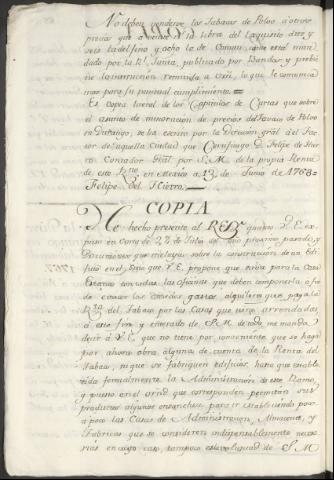 No deben venderse los Tabacos de Polvo á otros
precios que á veinte rs la libra del exquisito diez y
seis la del fino y ocho la de Comun, como está man
dado por la Rl. Junta, publicado por Bandos, y preve
nido
instruccion remitida á
para su puntual cumplimiento.=
Es copia literal de los Capitulos de Cartas que sobre
el asunto de minoracion de precios del Tavaco de Polvo
en Durango, se ha escrito por la Direccion gral. del
tor de aquella Ciudad que Certifico yo D. Felipe de Hie
rro Contador Gral. por S.M. de la propia Renta
de este Rno. en Mexico á 13 de Junio de 1768=
Felipe del Hierro
COPIA
He hecho presente al REY, quanto V.E. ex
puso en carta de 27 de Julio del año proximo pasado, y
Documentos que incluyó, sobre la construccion de un Edi
ficio en el que V.E. propone que sirva para la Casa
Estanco con todas las oficinas que deben componerla á fin
de evitar los crecidos gastos, alquileres que paga la
Rta. del Tabaco por las Casas que tiene arrendadas
á este fin; y enterado de S.M. de todo, me manda
decir á V.E. que no tiene por conveniente que se haga
por ahora obra alguna de cuenta de la Renta del
Tabaco, ni que se fabriquen edificios, hasta que estable
cida formalmente la Administracion de este Ramo,
y puesto en el orñ que corresponden, permitan sus
productos algunos ensanches para ir estableciendo po-
á poco las Casas de Administracion, Almacenes, y
Fabricas que se consideren indispensablemente nece
sarias en cuyo caso, tampoco es la voluntad de S.M